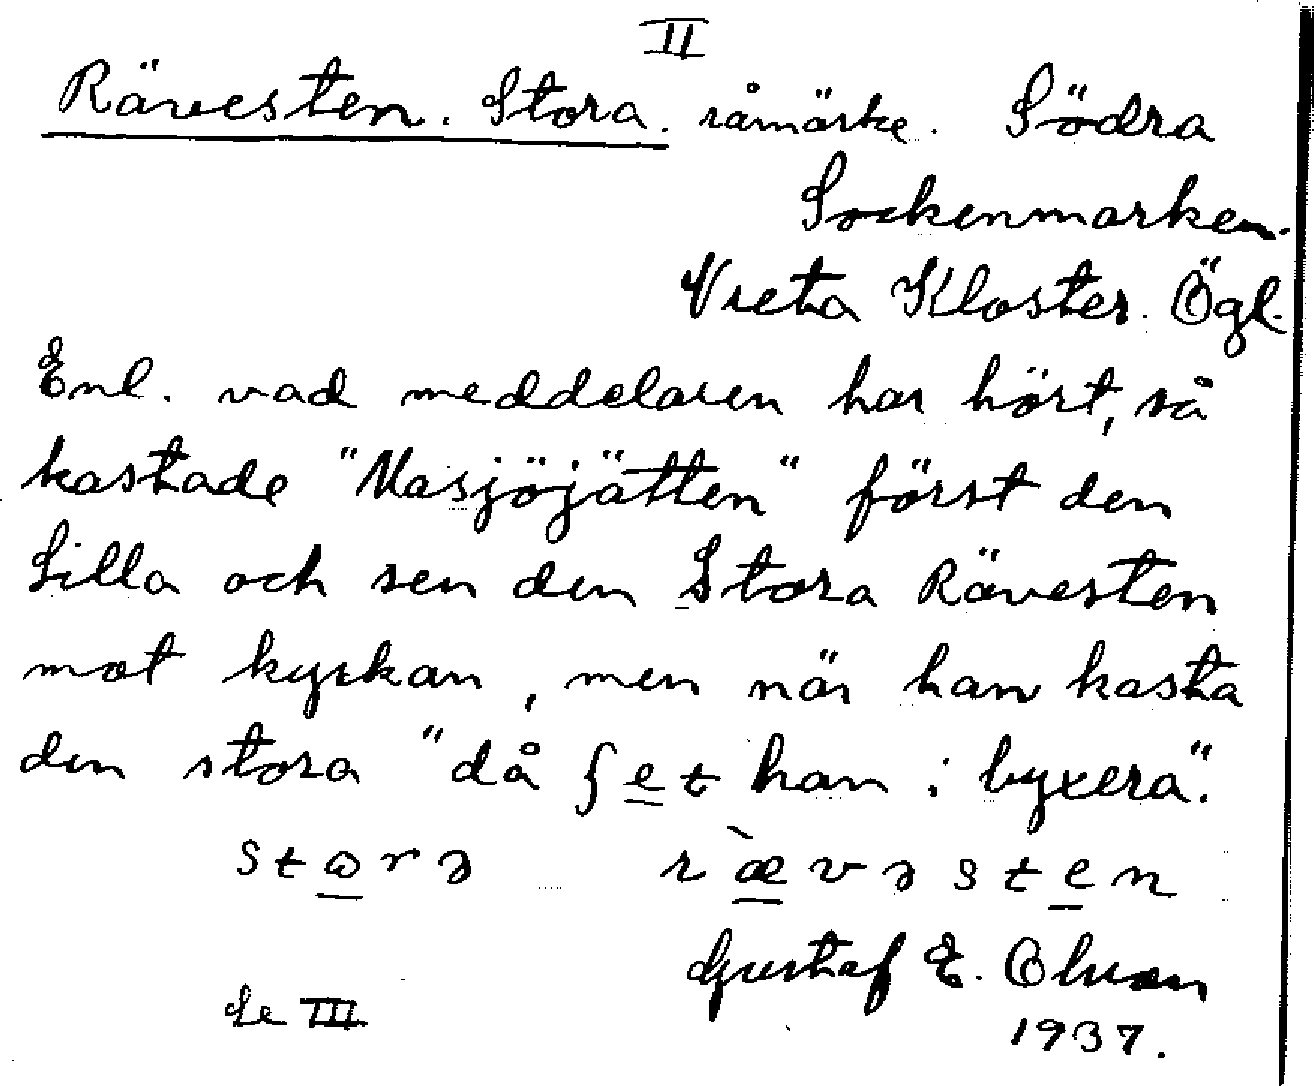 II
Rävesten. Stora. råmärke. Södra
Sockenmarken.
Vreta Kloster. Ögl.
Enl. vad meddelaren har hört, så
kastade "Masjöjätten" först den
Lilla och sen den Stora Rävesten
mot kyrkan, men när han kasta
den stora "då ʃet han i byxera".
stɷrɘ rævɘsten
Gustaf E. Olson
Se III 1937.